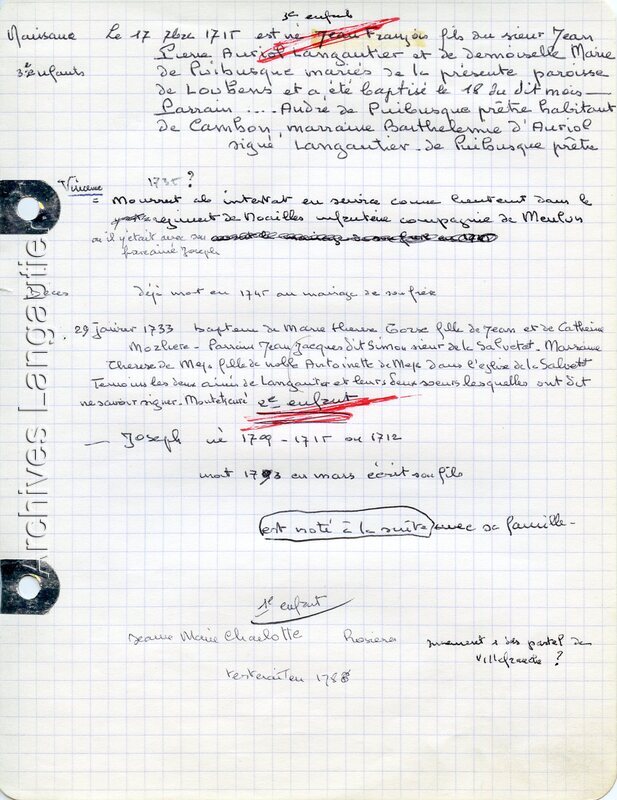 3e enfants
Naissance Le 17 7bre 1715 est né Jean François fils du sieur Jean
3e Enfants Pierre Auriol Langautier et de demoiselle Marie
de Puibusque mariés de la présente paroisse
de Loubens et a été baptisé le 18 du dit mois —
Parrain .... André de Puibusque prêtre habitant
de Cambon, marraine Barthelemie d'Auriol
signé Langautier - de Puibusque prêtre
1735 ?
= Mourrut ab intestat en service comme lieutenant dans le
regiment de Noailles infanterie compagnie de Meulun
ou il y était avec son
Joseph
Deces déjà mort en 1745 au mariage de son frère
29 janvier 1733 bapteme de Marie therese fille de Jean et de Catherine
Parrain Jean Jacques dit Simon sieur de la Salvetat - Marraine
Therese de fille de noble Antoinette de dans l'église de la Salvetat
Temoins les deux ainés de Langautier et leurs deux soeurs lesquelles ont dit
ne savoir signer - 2e enfant
— Joseph né 1709 - 1715 ou 1712
mort 1793 en mars écrit son fils
est noté à la suite avec sa famille -
1e enfant
Jeanne Marie Charlotte
surement des pastel de
Villefranche ?
1788
Archives Langautier